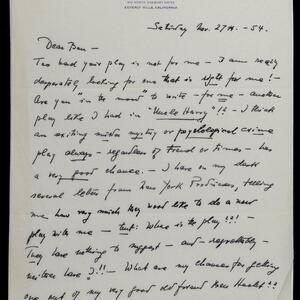 BEVERLY HILLS, CALIFORNIA
Saturday Nov. 27th. - 54.
Dear Ben -
Too bad your play is not for me - I am really
desperately looking for one that is right for me! -
Are you in the mood to write - for me - another
play like I had in "Uncle Harry"!! - I think
an exciting murder mystery or psychological crime
play always - regardless of Trend or times - has
a very good chance. - I have on my desk
several letters from New York Producers, telling
me how very much they would like to do a new
play with me - but: Where is the play?!! -
They have nothing to suggest - and - regrettably -
neither have I!! - What are my chances for getting
one out of my very good old friend Ben Hecht!?